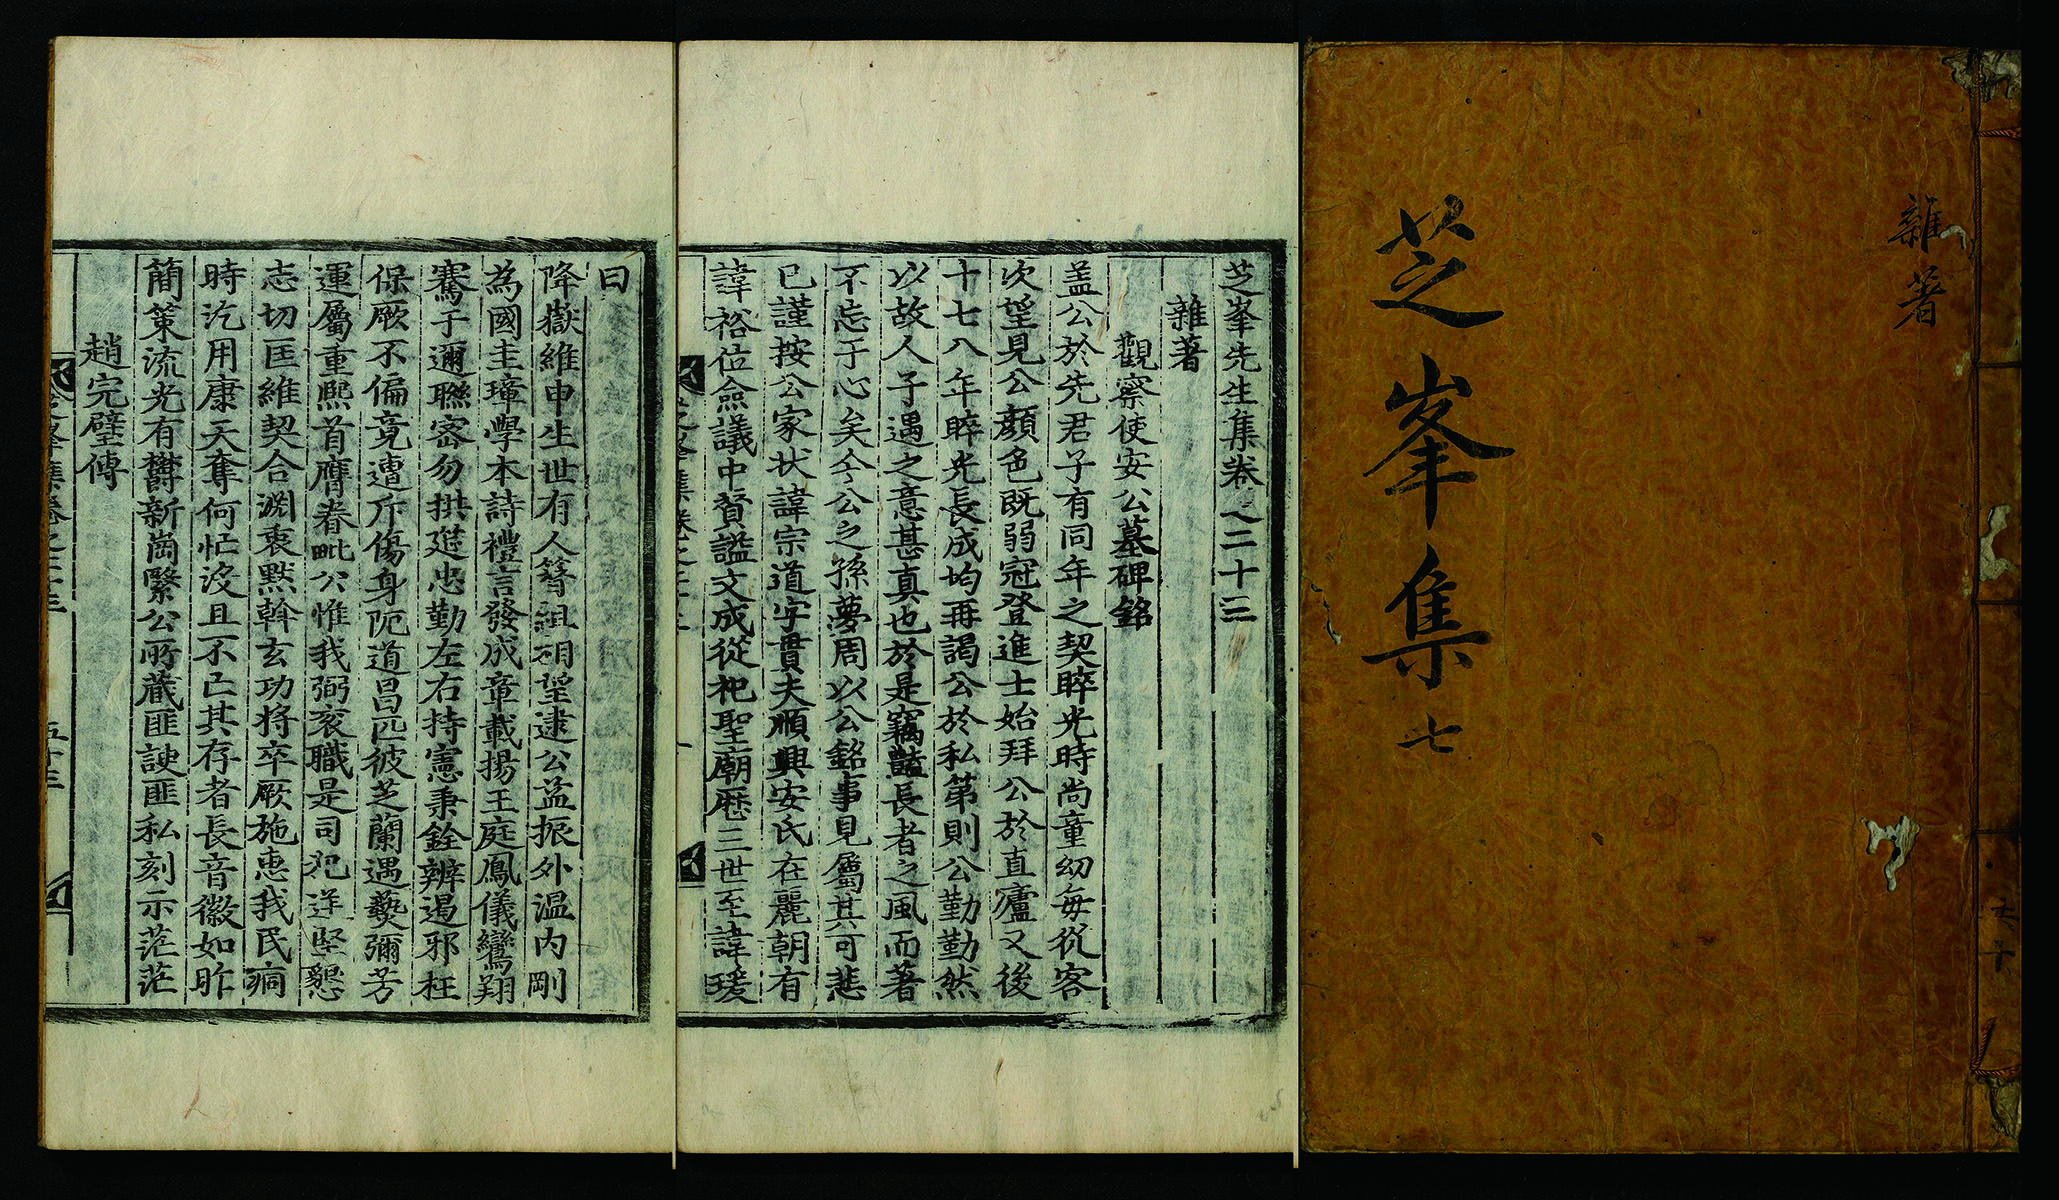 雜著
芝峯集 七
共十
芝峯先生集卷之二十三
雜著
觀察使安公墓碑銘
盖公於先君子有同年之契睟光時尚童幼每從客
次望見公顔色既弱冠登進士始拜公於直廬又後
十七八年睟光長成均再謁公於私第則公勤勤然
以故人子遇之意甚真也於是竊豔長者之風而著
不忘于心矣今公之孫夢周以公銘事見屬其可悲
已謹按公家状諱宗道字貫夫順興安氏在麗朝有
諱裕位僉議中賛謚文成從祀聖廟歷三世至諱瑗
曰
降嶽維申生世有人簪組相望逮公益振外温内剛
為國圭璋學本詩禮言發成章載揚王庭鳳儀鸞翔
騫于邇聯密勿拱莚忠勤左右持憲秉銓辨遏邪枉
保厥不偏竟遭斥傷身阨道昌匹彼芝蘭遇爇彌芳
運屬重熙首膺眷毗公惟我弼衮職是司犯逆堅懇
志切匡維契合淵衷默斡玄功将卒厥施惠我民痌
時汔用康天奪何忙没且不亡其存者長音徽如昨
簡策流光有欝新崗繄公所藏匪諛匪私刻示茫茫
趙完璧傳